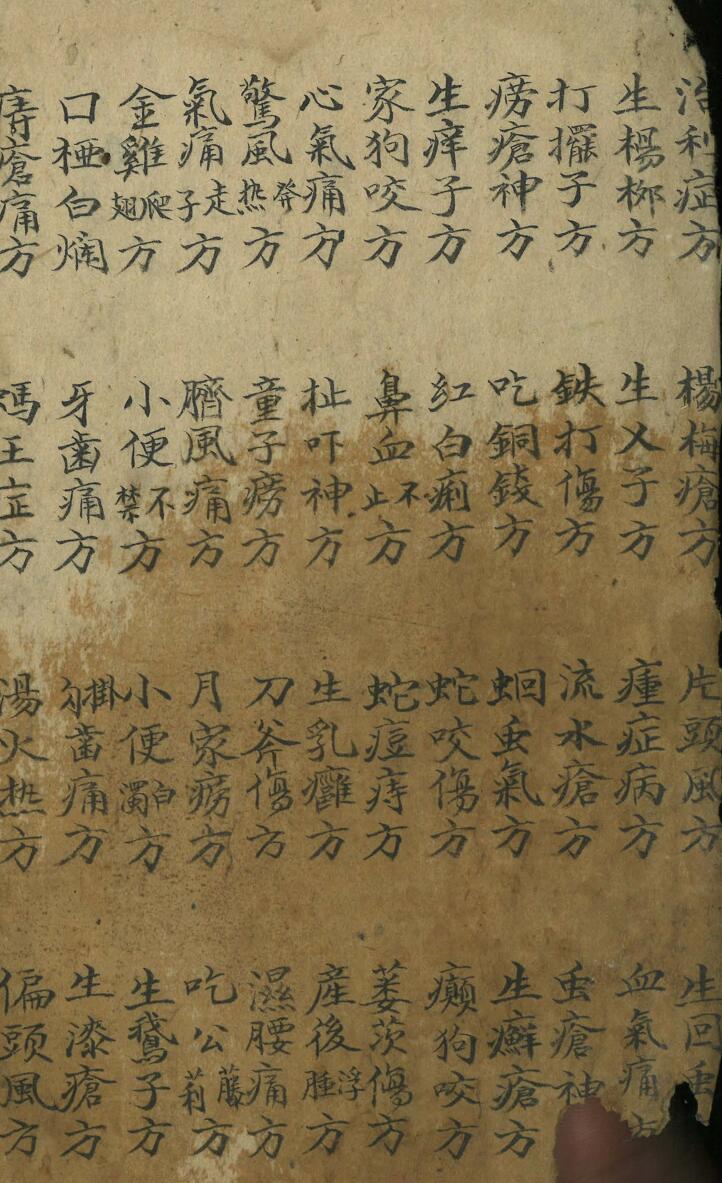 治利症方 楊梅瘡方 片頭風方 生回虫
生楊柳方 生乂子方 瘇症病方 血氣痛方
打擺子方 鉄打傷方 流水瘡方 虫瘡神
痨瘡神方 吃銅錢方 蛔虫氣方 生癬瘡方
生痒子方 红白痢方 蛇咬傷方 癲狗咬方
家狗咬方 鼻血不止方 蛇痘痔方 蒌茨傷方
心氣痛方 扯吓神方 生乳癰方 産後浮腫方
驚風發热方 童子痨方 刀斧傷方 濕腰痛方
氣痛走子方 臍風痛方 月家痨方 吃公藤莉方
金雞爬翅方 小便不禁方 小便白濁方 生鵞子方
口桠白烱方 牙齒痛方 掛勾齒痛方 生漆瘡方
痔瘡痛方 王症方 湯火热方 偏頭風方